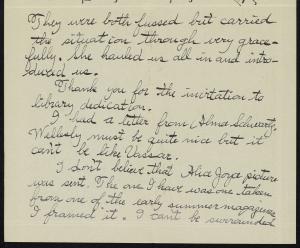 They were both fussed but carried
the situation through very grace-
fully. She hauled us all in and intro-
duced us.
Thank you for the invitation to
library dedication.
I had a letter from Alma Schwartz,
Wellesly must be quite nice but it
can't be like Vassar.
I don't believe that Alice picture
was sent. The one I have was one taken
from one of the early summer magazines
I framed it. I can't be surrounded